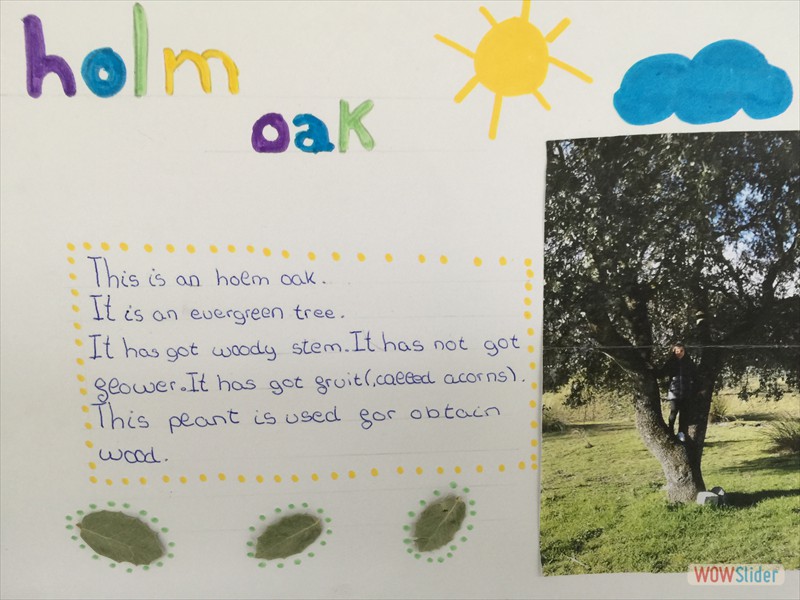 holm
oak
This is an holm oak.
It is an evergreen tree.
It has got woody stem.It has not got
flower.It has got fruit(,called acorns).
This plant is used for obtain
wood.
WOWSlider